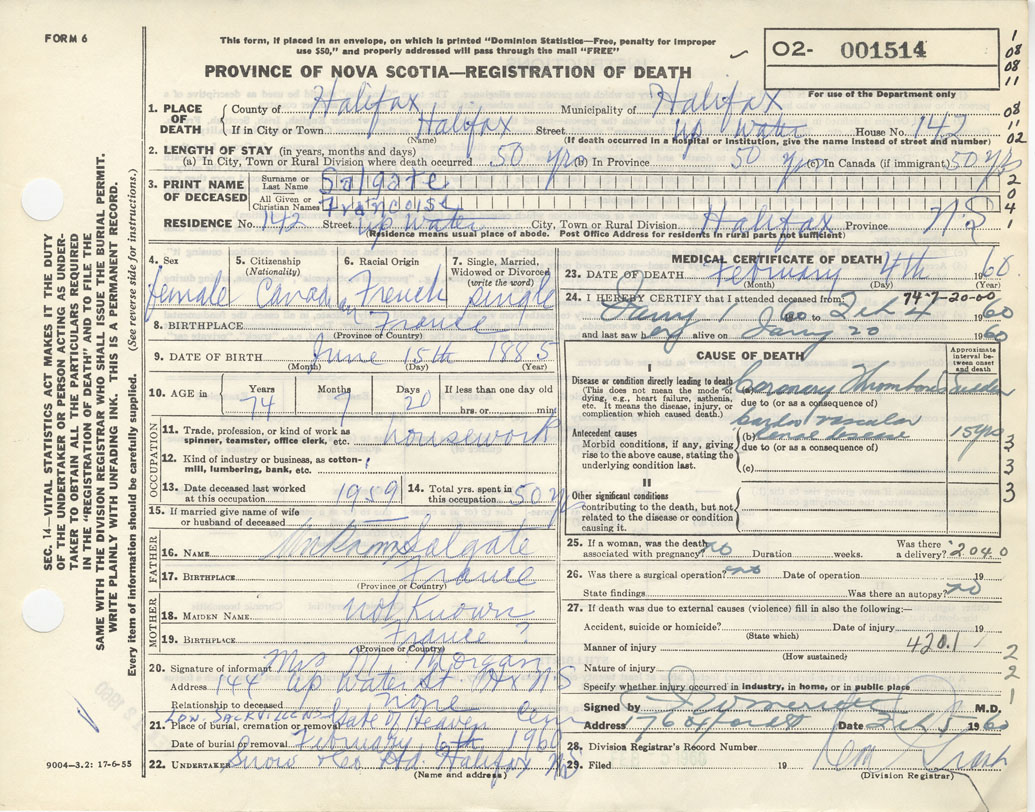 FORM 6
This form, if placed in an envelope, on which is printed "Dominion Statistics—Free, penalty for improper
use $50," and properly addressed will pass through the mail "FREE"
PROVINCE OF NOVA SCOTIA—REGISTRATION OF DEATH
02- 001514
For use of the Department only
1
08
08
11
08
11
02
2
0
4
1
1. PLACE OF DEATH
County of Halifax Municipality of Halifax
If in City or Town Halifax Street Up Water House No. 142
(Name) (If death occurred in a hospital or institution, give the name instead of street and number)
2. LENGTH OF STAY (in years, months and days)
(a) In City, Town or Rural Division where death occurred 50 yrs (b) In Province 50 yrs (c) In Canada (if immigrant) 50 yrs
3. PRINT NAME OF DECEASED
Surname or Last Name Salgate
All Given or Christian Names Francoise
RESIDENCE No. 142 Street Up Water City, Town or Rural Division Halifax Province N.S
(Residence means usual place of abode. Post Office Address for residents in rural parts not sufficient)
4. Sex
female
5. Citizenship
(Nationality)
Canadian
6. Racial Origin
French
7. Single, Married,
Widowed or Divorced
(write the word)
single
8. BIRTHPLACE France
(Province or Country)
9. DATE OF BIRTH June 15th 1885
(Month) (Day) (Year)
10. AGE in
Years 74
Months 7
Days 20
If less than one day old
hrs. or min.
OCCUPATION
11. Trade, profession, or kind of work as
spinner, teamster, office clerk, etc. housework
12. Kind of industry or business, as cotton-
mill, lumbering, bank, etc.
13. Date deceased last worked
at this occupation 1959
14. Total yrs. spent in
this occupation 50 yrs
15. If married give name of wife
or husband of deceased
FATHER
16. NAME Unknown Salgate
17. BIRTHPLACE France
(Province or Country)
MOTHER
18. MAIDEN NAME not Known
19. BIRTHPLACE France ?
(Province or Country)
20. Signature of informant Mrs M. Morgan
Address 144 Up Water St Hx N S
Relationship to deceased none
LOW. SACKVILLE NS
21. Place of burial, cremation or removal Gate of Heaven Cem
Date of burial or removal February 6th 1960
22. UNDERTAKER Snow & Co Ltd. Halifax NS
(Name and address)
MEDICAL CERTIFICATE OF DEATH
23. DATE OF DEATH February 4th 1960
(Month) (Day) (Year)
74-7-20-00
24. I HEREBY CERTIFY that I attended deceased from
Jany 1 1960 to Feb 4 1960
and last saw her alive on Jany 20 1960
CAUSE OF DEATH
Approximate
interval be-
tween onset
and death
I
Disease or condition directly leading to death
(This does not mean the mode of
dying, e.g., heart failure, asthenia,
etc. It means the disease, injury, or
complication which caused death.)
(a) Coronary Thrombosis sudden
due to (or as a consequence of)
Antecedent causes
Morbid conditions, if any, giving
rise to the above cause, stating the
underlying condition last.
Cardio Vascular
(b) 15 yrs
due to (or as a consequence of)
(c)
3
3
3
II
Other significant conditions
contributing to the death, but not
related to the disease or condition
causing it.
25. If a woman, was the death
associated with pregnancy? no Duration weeks. Was there
a delivery? 2040
26. Was there a surgical operation? no Date of operation 19
State findings Was there an autopsy? no
27. If death was due to external causes (violence) fill in also the following:—
Accident, suicide or homicide? Date of injury 19
(State which)
Manner of injury 420.1
(How sustained)
Nature of injury
2
2
1
Specify whether injury occurred in industry, in home, or in public place
Signed by M.D.
Address 176 Oxford St Date Feb 5 1960
28. Division Registrar's Record Number
29. Filed 19
(Division Registrar)
SEC. 14—VITAL STATISTICS ACT MAKES IT THE DUTY
OF THE UNDERTAKER OR PERSON ACTING AS UNDER-
TAKER TO OBTAIN ALL THE PARTICULARS REQUIRED
IN THE "REGISTRATION OF DEATH" AND TO FILE THE
SAME WITH THE DIVISION REGISTRAR WHO SHALL ISSUE THE BURIAL PERMIT.
WRITE PLAINLY WITH UNFADING INK. THIS IS A PERMANENT RECORD.
Every item of information should be carefully supplied. (See reverse side for instructions.)
9004—3.2: 17-6-55